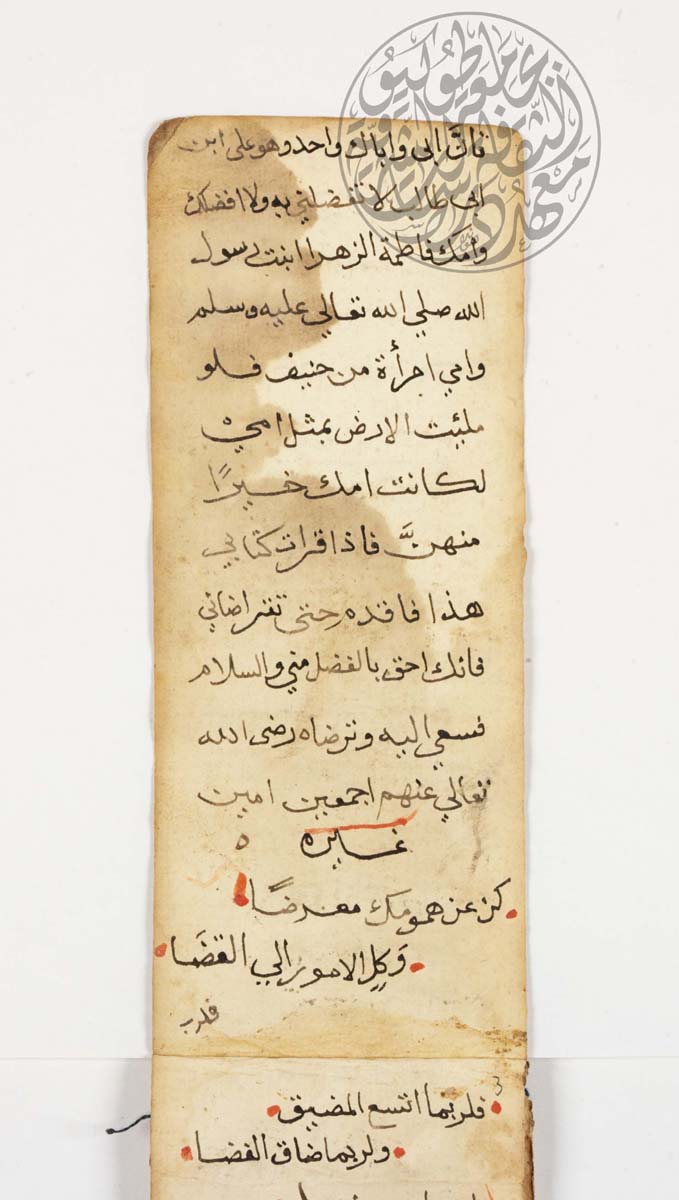 فان ابي واباك واحد وهو علي ابن
ابي طالب لا تفضلني به ولا افضلك
وامك فاطمة الزهرا ابنت رسول
الله صلي الله تعالي عليه وسلم
وامي امرأة من حنيف فلو
ملئت الارض بمثل امي
لكانت امك خيرًا
منهنَّ فاذا قرات كتابي
هذا فاقدم حتى تتراضاني
فانك احق بالفضل مني والسلام
فسعي اليه وترضاه رضى الله
تعالي عنهم اجمعين امين
غيره ه
كن عن همومك معرضًا
وَكِلِ الامور الي القضَا
فلرب
3
فلربما اتسع المضيق
ولربما ضاق الفضا